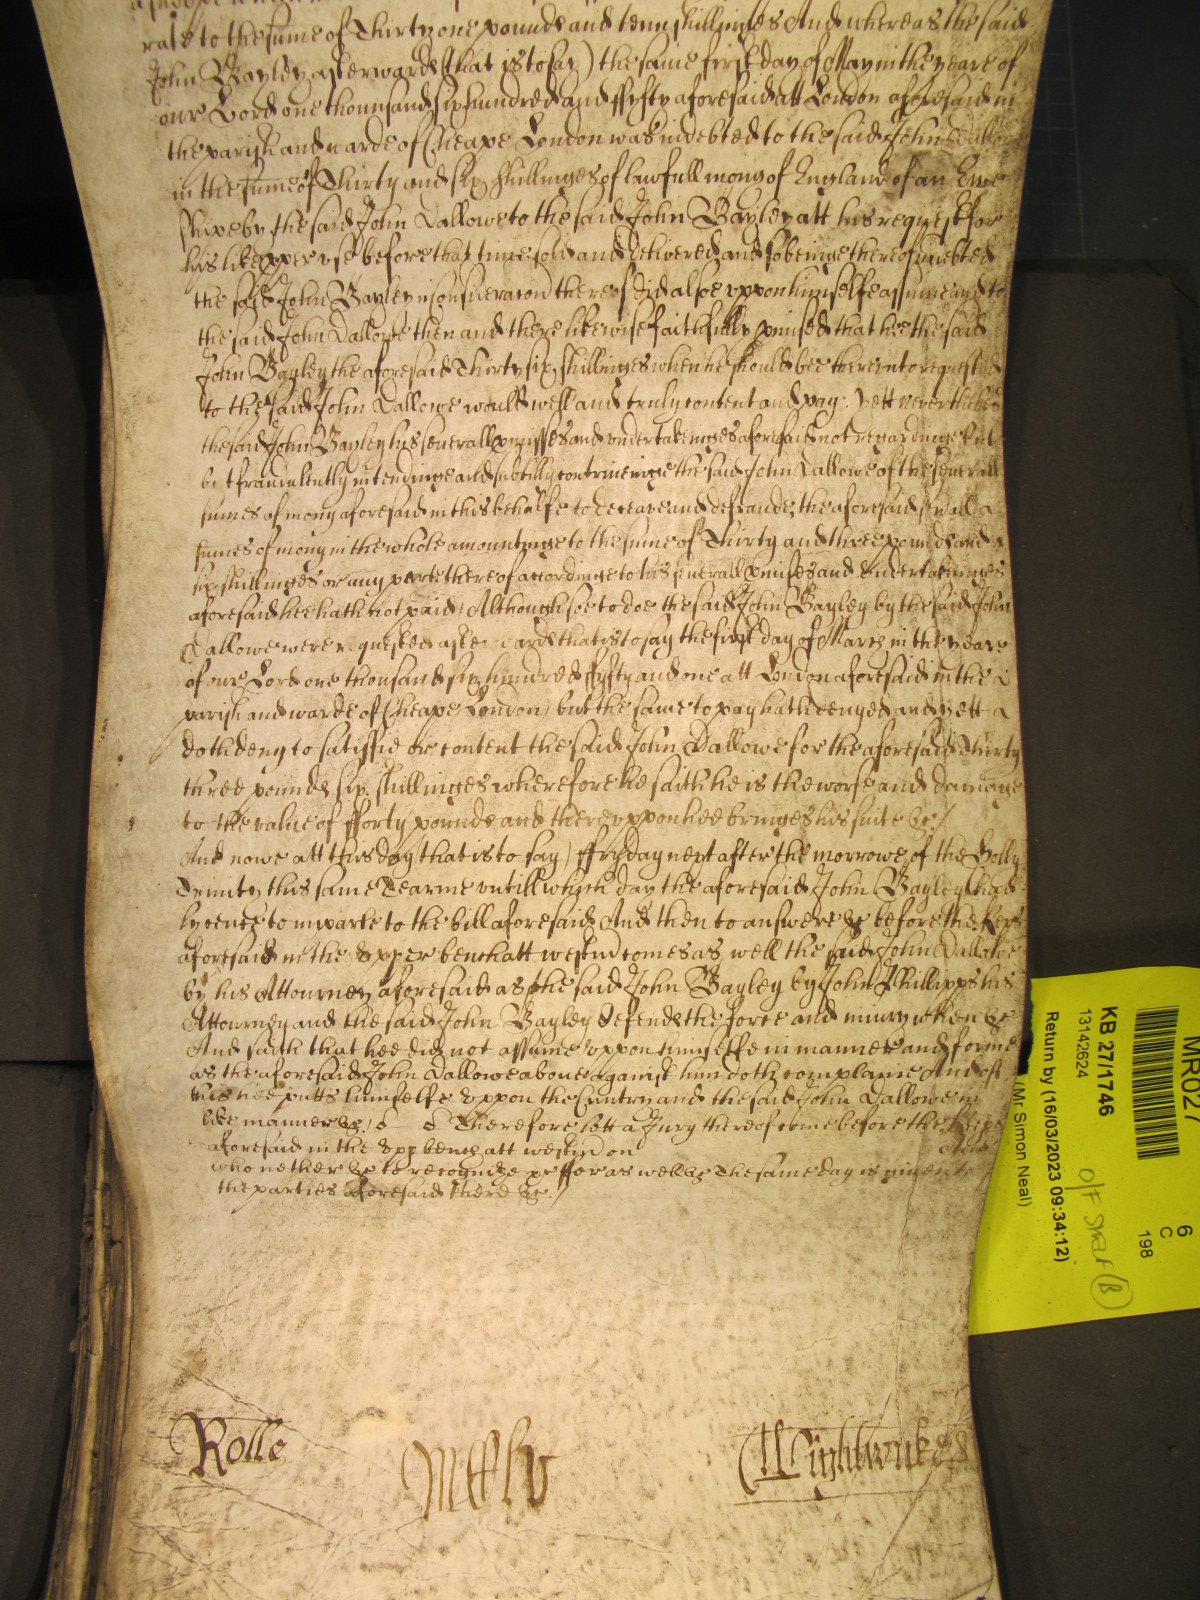 rate to the sume of Thirty one pounds and tenn shillinges And whereas the said
John Bayley afterwards (that is to say) the same first day of May in the yeare of
our Lord one thousand six hundred and ffyfty aforesaid att London aforesaid in
the parish and warde of Cheape London was indebted to the said John Dallowe
in the sume of Thirty and six shillinges of lawfull mony of England of an Ewe
by the said John Dallowe to the said John Bayley att his request for
his like vse before that time sold and delivered and so beinge thereof indebted
the said John Bayley in consideracon thereof did alsoe vppon himselfe assume and to
the said John Dallowe then and there likewise faithfully pmised that hee the said
John Bayley the aforesaid Thirty six shillinges when he should bee thereunto requested
to the said John Dallowe would well and truly content and pay: Yett neverthelesse
the said John Bayley his severall pmisses and vndertakeinges aforesaid not regardinge
but fraudulently intendinge and subtilly contriveinge the said John Dallowe of the severall
sumes of mony aforesaid in this behalfe to deceave and defraude, the aforesaid sevall
sumes of mony in the whole amountinge to the sume of Thirty and three pounds and
six shillinges or any parte thereof accordinge to his severall pmises and vndertakeinges
aforesaid hee hath not paid, Although soe to doe the said John Bayley by the said John
Dallowe were requested afterwards that is to say the first day of March in the yeare
of our Lord one thousand six hundred ffyfty and one att London aforesaid in the
parish and warde of Cheape London, but the same to pay hath denyed and yett
doth deny to satisfie or content the said John Dallowe for the aforesaid Thirty
three pounds six shillinges wherefore he saith he is the worse and damage
to the value of fforty pounds and therevppon hee bringes his suite &c /
And nowe att this day that is to say, ffryday next after the morrowe of the Holly
Trinity this same Tearme vntill which day the aforesaid John Bayley had
lycence to imparle to the bill aforesaid And then to answere &c before the Keps
aforesaid in the vpper bench att westm comes as well the said John Dallowe
by his Attourney aforesaid as the said John Bayley by John Phillipps his
Attourney and the said John Bayley defends the force and iniury when &c
And saith that hee did not assume vppon himselfe in manner and forme
as the aforesaid John Dallowe above against him doth complaine And of
this hee putts himselfe vppon the Cuntry and the said John Dallowe in
like manner &c, Therefore lett a Jury thereof come before the Keeps
aforesaid in the vpp bench att westm on
who nether &c to recognize &c as well &c The same day is given to
the parties aforesaid there &c /
Rolle
Wightwicke
MR027
KB 27/1746
13142624
Return by (16/03/2023 09:34:12)
(Mr Simon Neal)
6
C
198
O/F Shelf (B)